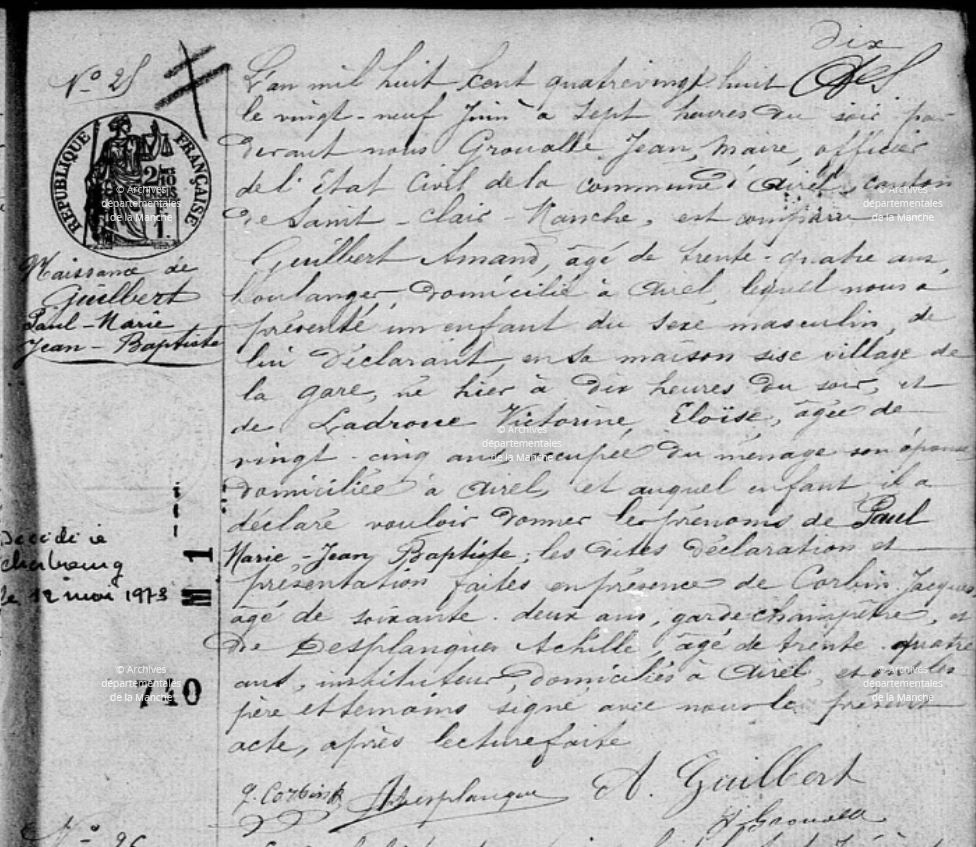 Dix
N° 25
L'an mil huit cent quatrevingt huit
le vingt-neuf Juin à sept heures du soir par
devant nous Groualle Jean, Maire, officier
de l'Etat Civil de la commune d'Airel, canton
de Saint-Clair-Manche, est comparu
Guilbert Amand, âgé de trente-quatre ans,
boulanger, domicilié à Airel, lequel nous a
présenté un enfant du sexe masculin, de
lui déclarant, en sa maison sise village de
la gare, né hier à dix heures du soir, et
de Ladroue Victorine, Eloïse, âgée de
vingt-cinq ans occupée du ménage son épouse
domiciliée à Airel, et auquel enfant il a
déclaré vouloir donner les prénoms de Paul
Marie-Jean Baptiste; les dites déclaration et
présentation faites en présence de Corbin Jacques
âgé de soixante-deux ans, garde champêtre, et
de Desplanques Achille, âgé de trente-quatre
ans, instituteur, domiciliés à Airel, et ont les
père et témoins signé avec nous le présent
acte, après lecture faite
J. Corbin A Desplanques A. Guilbert
J. Groualle
RÉPUBLIQUE FRANÇAISE
Naissance de
Guilbert
Paul-Marie
Jean-Baptiste
Décédé à
Cherbourg
le 12 mai 1973
M 1
740
N° 26
© Archives
départementales
de la Manche
© Archives
départementales
de la Manche
© Archives
départementales
de la Manche
© Archives
départementales
de la Manche
© Archives
départementales
de la Manche